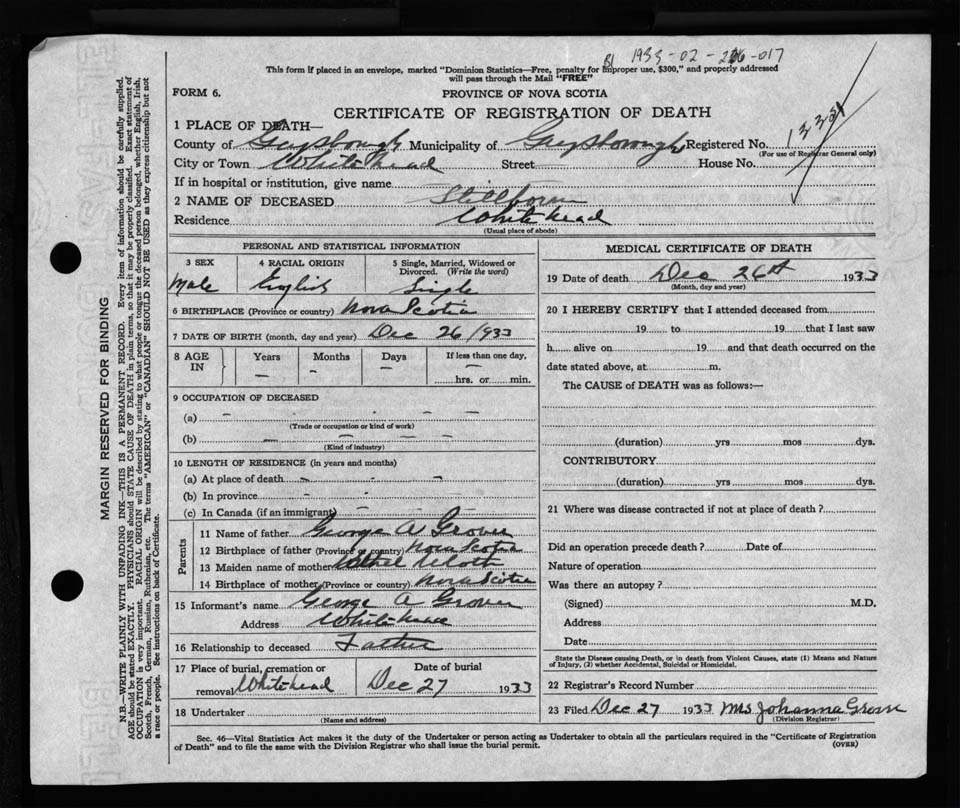 1933-02-226-017
This form if placed in an envelope, marked "Dominion Statistics—Free, penalty for improper use, $300," and properly addressed
will pass through the Mail "FREE"
FORM 6.
PROVINCE OF NOVA SCOTIA
CERTIFICATE OF REGISTRATION OF DEATH
1 PLACE OF DEATH—
County of Guysborough Municipality of Guysborough Registered No.
(For use of Registrar General only)
City or Town Whitehead Street House No.
If in hospital or institution, give name
2 NAME OF DECEASED Stillborn
Residence Whitehead
(Usual place of abode)
PERSONAL AND STATISTICAL INFORMATION
3 SEX 4 RACIAL ORIGIN 5 Single, Married, Widowed or
Divorced. (Write the word)
Male English Single
6 BIRTHPLACE (Province or country) Nova Scotia
7 DATE OF BIRTH (month, day and year) Dec 26/933
8 AGE IN Years Months Days If less than one day,
— — — hrs. or min.
9 OCCUPATION OF DECEASED
(a) - - - -
(Trade or occupation or kind of work)
(b) — — — —
(Kind of industry)
10 LENGTH OF RESIDENCE (in years and months)
(a) At place of death - - -
(b) In province - - -
(c) In Canada (if an immigrant) - -
Parents
11 Name of father George A Grover
12 Birthplace of father (Province or country) Nova Scotia
13 Maiden name of mother
14 Birthplace of mother (Province or country) Nova Scotia
15 Informant's name George A Grover
Address Whitehead
16 Relationship to deceased Father
17 Place of burial, cremation or Date of burial
removal Whitehead Dec 27 1933
18 Undertaker
(Name and address)
MEDICAL CERTIFICATE OF DEATH
19 Date of death Dec 26th 1933
(Month, day and year)
20 I HEREBY CERTIFY that I attended deceased from
19 to 19 that I last saw
h alive on 19 and that death occurred on the
date stated above, at m.
The CAUSE of DEATH was as follows:—
(duration) yrs mos dys.
CONTRIBUTORY
(duration) yrs mos dys.
21 Where was disease contracted if not at place of death?
Did an operation precede death? Date of
Nature of operation
Was there an autopsy?
(Signed) M.D.
Address
Date
State the Disease causing Death, or in death from Violent Causes, state (1) Means and Nature
of Injury, (2) whether Accidental, Suicidal or Homicidal.
22 Registrar's Record Number
23 Filed Dec 27 1933 Mrs Johanna Grover
(Division Registrar)
Sec. 46—Vital Statistics Act makes it the duty of the Undertaker or person acting as Undertaker to obtain all the particulars required in the "Certificate of Registration
of Death" and to file the same with the Division Registrar who shall issue the burial permit.
(OVER)
MARGIN RESERVED FOR BINDING
N.B.—WRITE PLAINLY WITH UNFADING INK—THIS IS A PERMANENT RECORD. Every item of information should be carefully supplied.
AGE should be stated EXACTLY. PHYSICIANS should STATE CAUSE OF DEATH in plain terms, so that it may be properly classified. Exact statement of
OCCUPATION is very important. RACIAL ORIGIN will be described by stating to what people or tongue the deceased person belonged, whether English, Irish,
Scotch, French, German, Russian, Ruthenian, etc. The terms "AMERICAN" or "CANADIAN" SHOULD NOT BE USED as they express citizenship but not
a race or people. See instructions on back of Certificate.